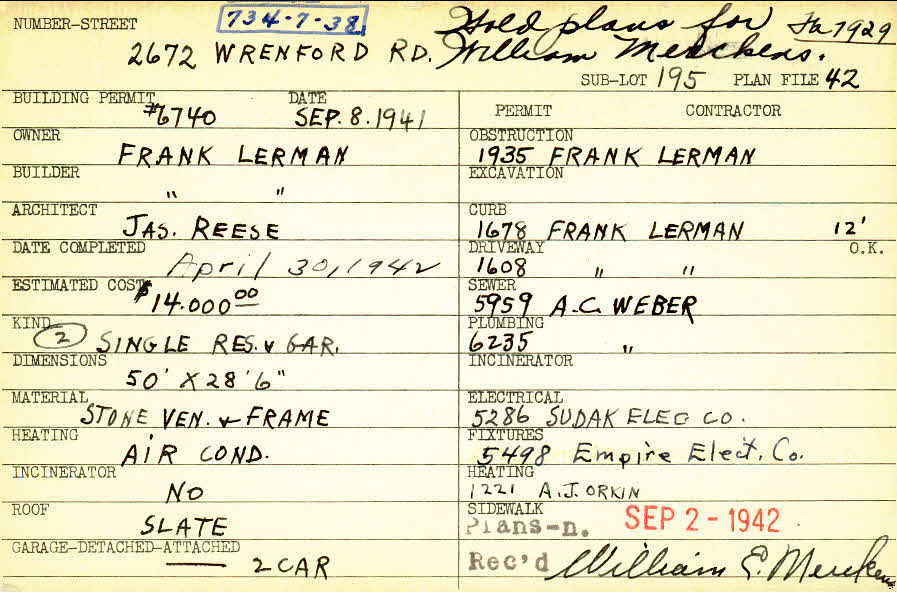 NUMBER-STREET 734-7-38 Hold plans for Fa 7929
2672 WRENFORD RD. William Merckens.
SUB-LOT 195 PLAN FILE 42
BUILDING PERMIT DATE
#6740 SEP. 8. 1941
PERMIT CONTRACTOR
OWNER
FRANK LERMAN
BUILDER
" "
ARCHITECT
JAS. REESE
DATE COMPLETED
April 30, 1942
ESTIMATED COST
$14.000 00
KIND
2 SINGLE RES. & GAR.
DIMENSIONS
50' X 28' 6"
MATERIAL
STONE VEN. & FRAME
HEATING
AIR COND.
INCINERATOR
NO
ROOF
SLATE
GARAGE-DETACHED-ATTACHED
2 CAR
OBSTRUCTION
1935 FRANK LERMAN
EXCAVATION
CURB
1678 FRANK LERMAN 12'
DRIVEWAY O.K.
1608 " "
SEWER
5959 A.C. WEBER
PLUMBING
6235 "
INCINERATOR
ELECTRICAL
5286 SUDAK ELEC CO.
FIXTURES
5498 Empire Elect. Co.
HEATING
1221 A.J. ORKIN
SIDEWALK
Plans-n. SEP 2 - 1942
Rec'd William E. Merckens